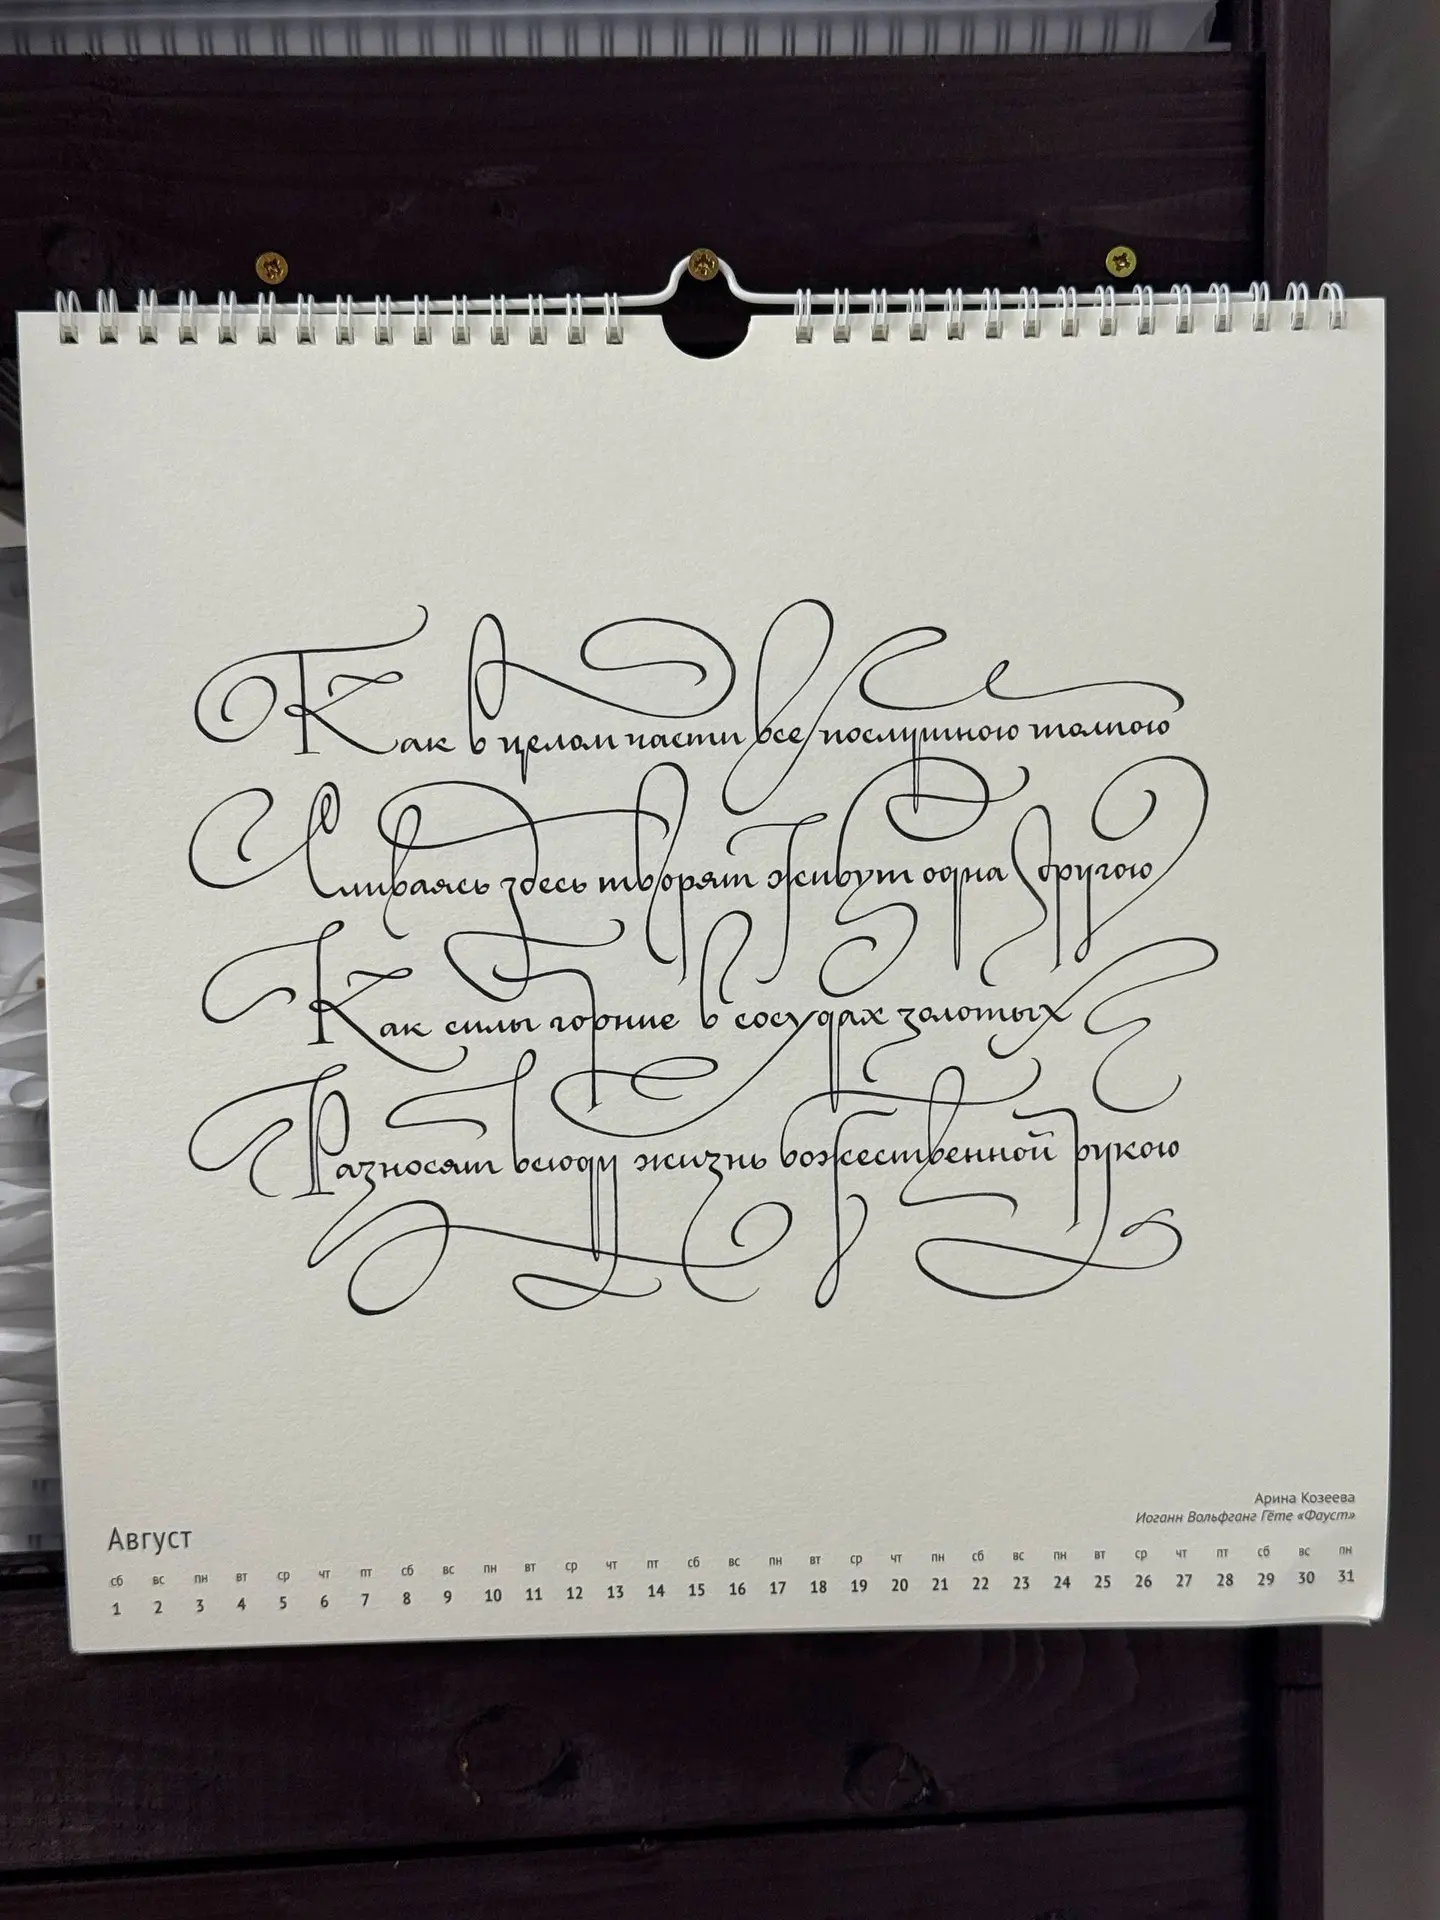 Как в целом части все послушною толпою
Сливаясь здесь творят живут одна другою
Как силы горние в сосудах золотых
Разносят всюду жизнь божественной рукою
Арина Козеева
Иоганн Вольфганг Гёте «Фауст»
Август
сб вс пн вт ср чт пт сб вс пн вт ср чт пт сб вс пн вт ср чт пн сб вс пн вт ср чт пт сб вс пн
1 2 3 4 5 6 7 8 9 10 11 12 13 14 15 16 17 18 19 20 21 22 23 24 25 26 27 28 29 30 31